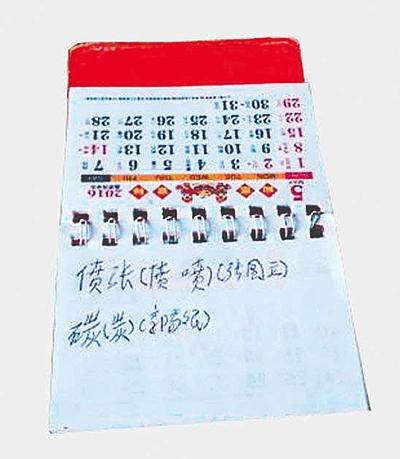 5 MAY 2016
SUN MON TUE WED THU FRI SAT
1 2 3 4 5 6 7
8 9 10 11 12 13 14
15 16 17 18 19 20 21
22 23 24 25 26 27 28
29 30 31
偾张(喷)(张国)
碳(炭)(郭)